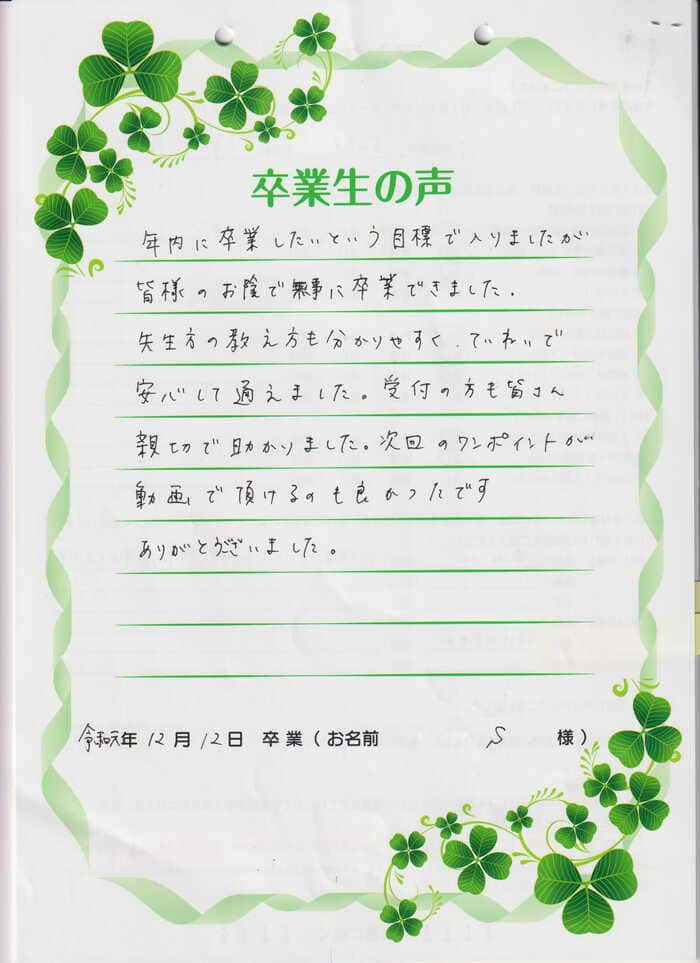 卒業生の声
年内に卒業したいという目標で入りましたが
皆様のお陰で無事に卒業できました.
先生方の教え方も分かりやすく、ていねいで
安心して通えました。受付の方も皆さん
親切で助かりました。次回のワンポイントが
動画で頂けるのも良かったです
ありがとうございました。
令和元年12月12日 卒業(お名前 S 様)